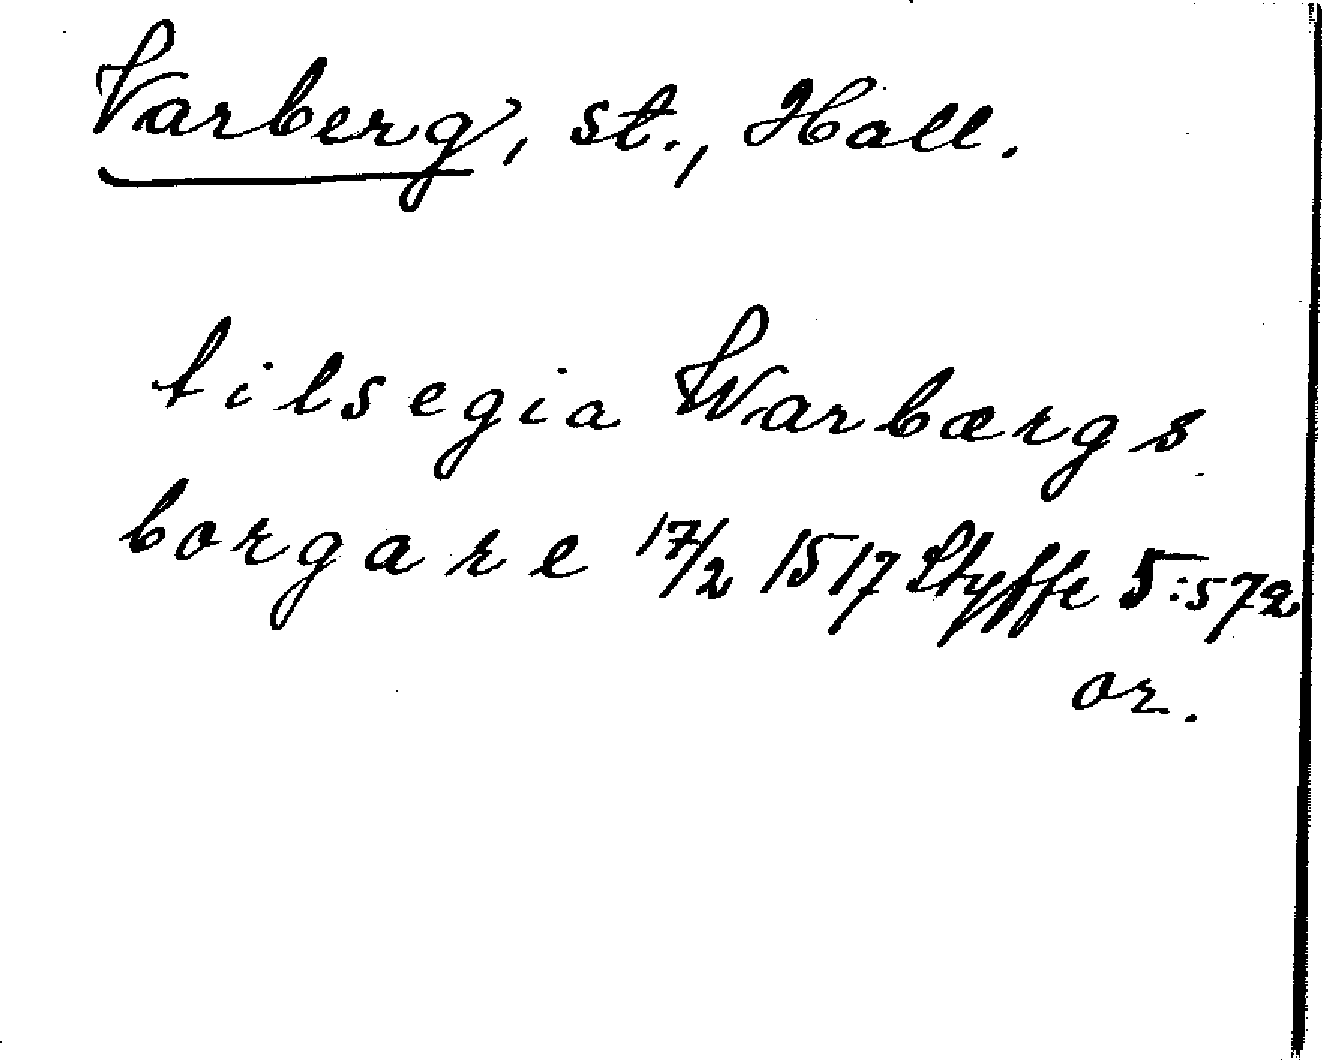 Varberg, st., Hall.
tilsegia Warbærgs
borgare 17/2 1517 Styffe 5:572
or.